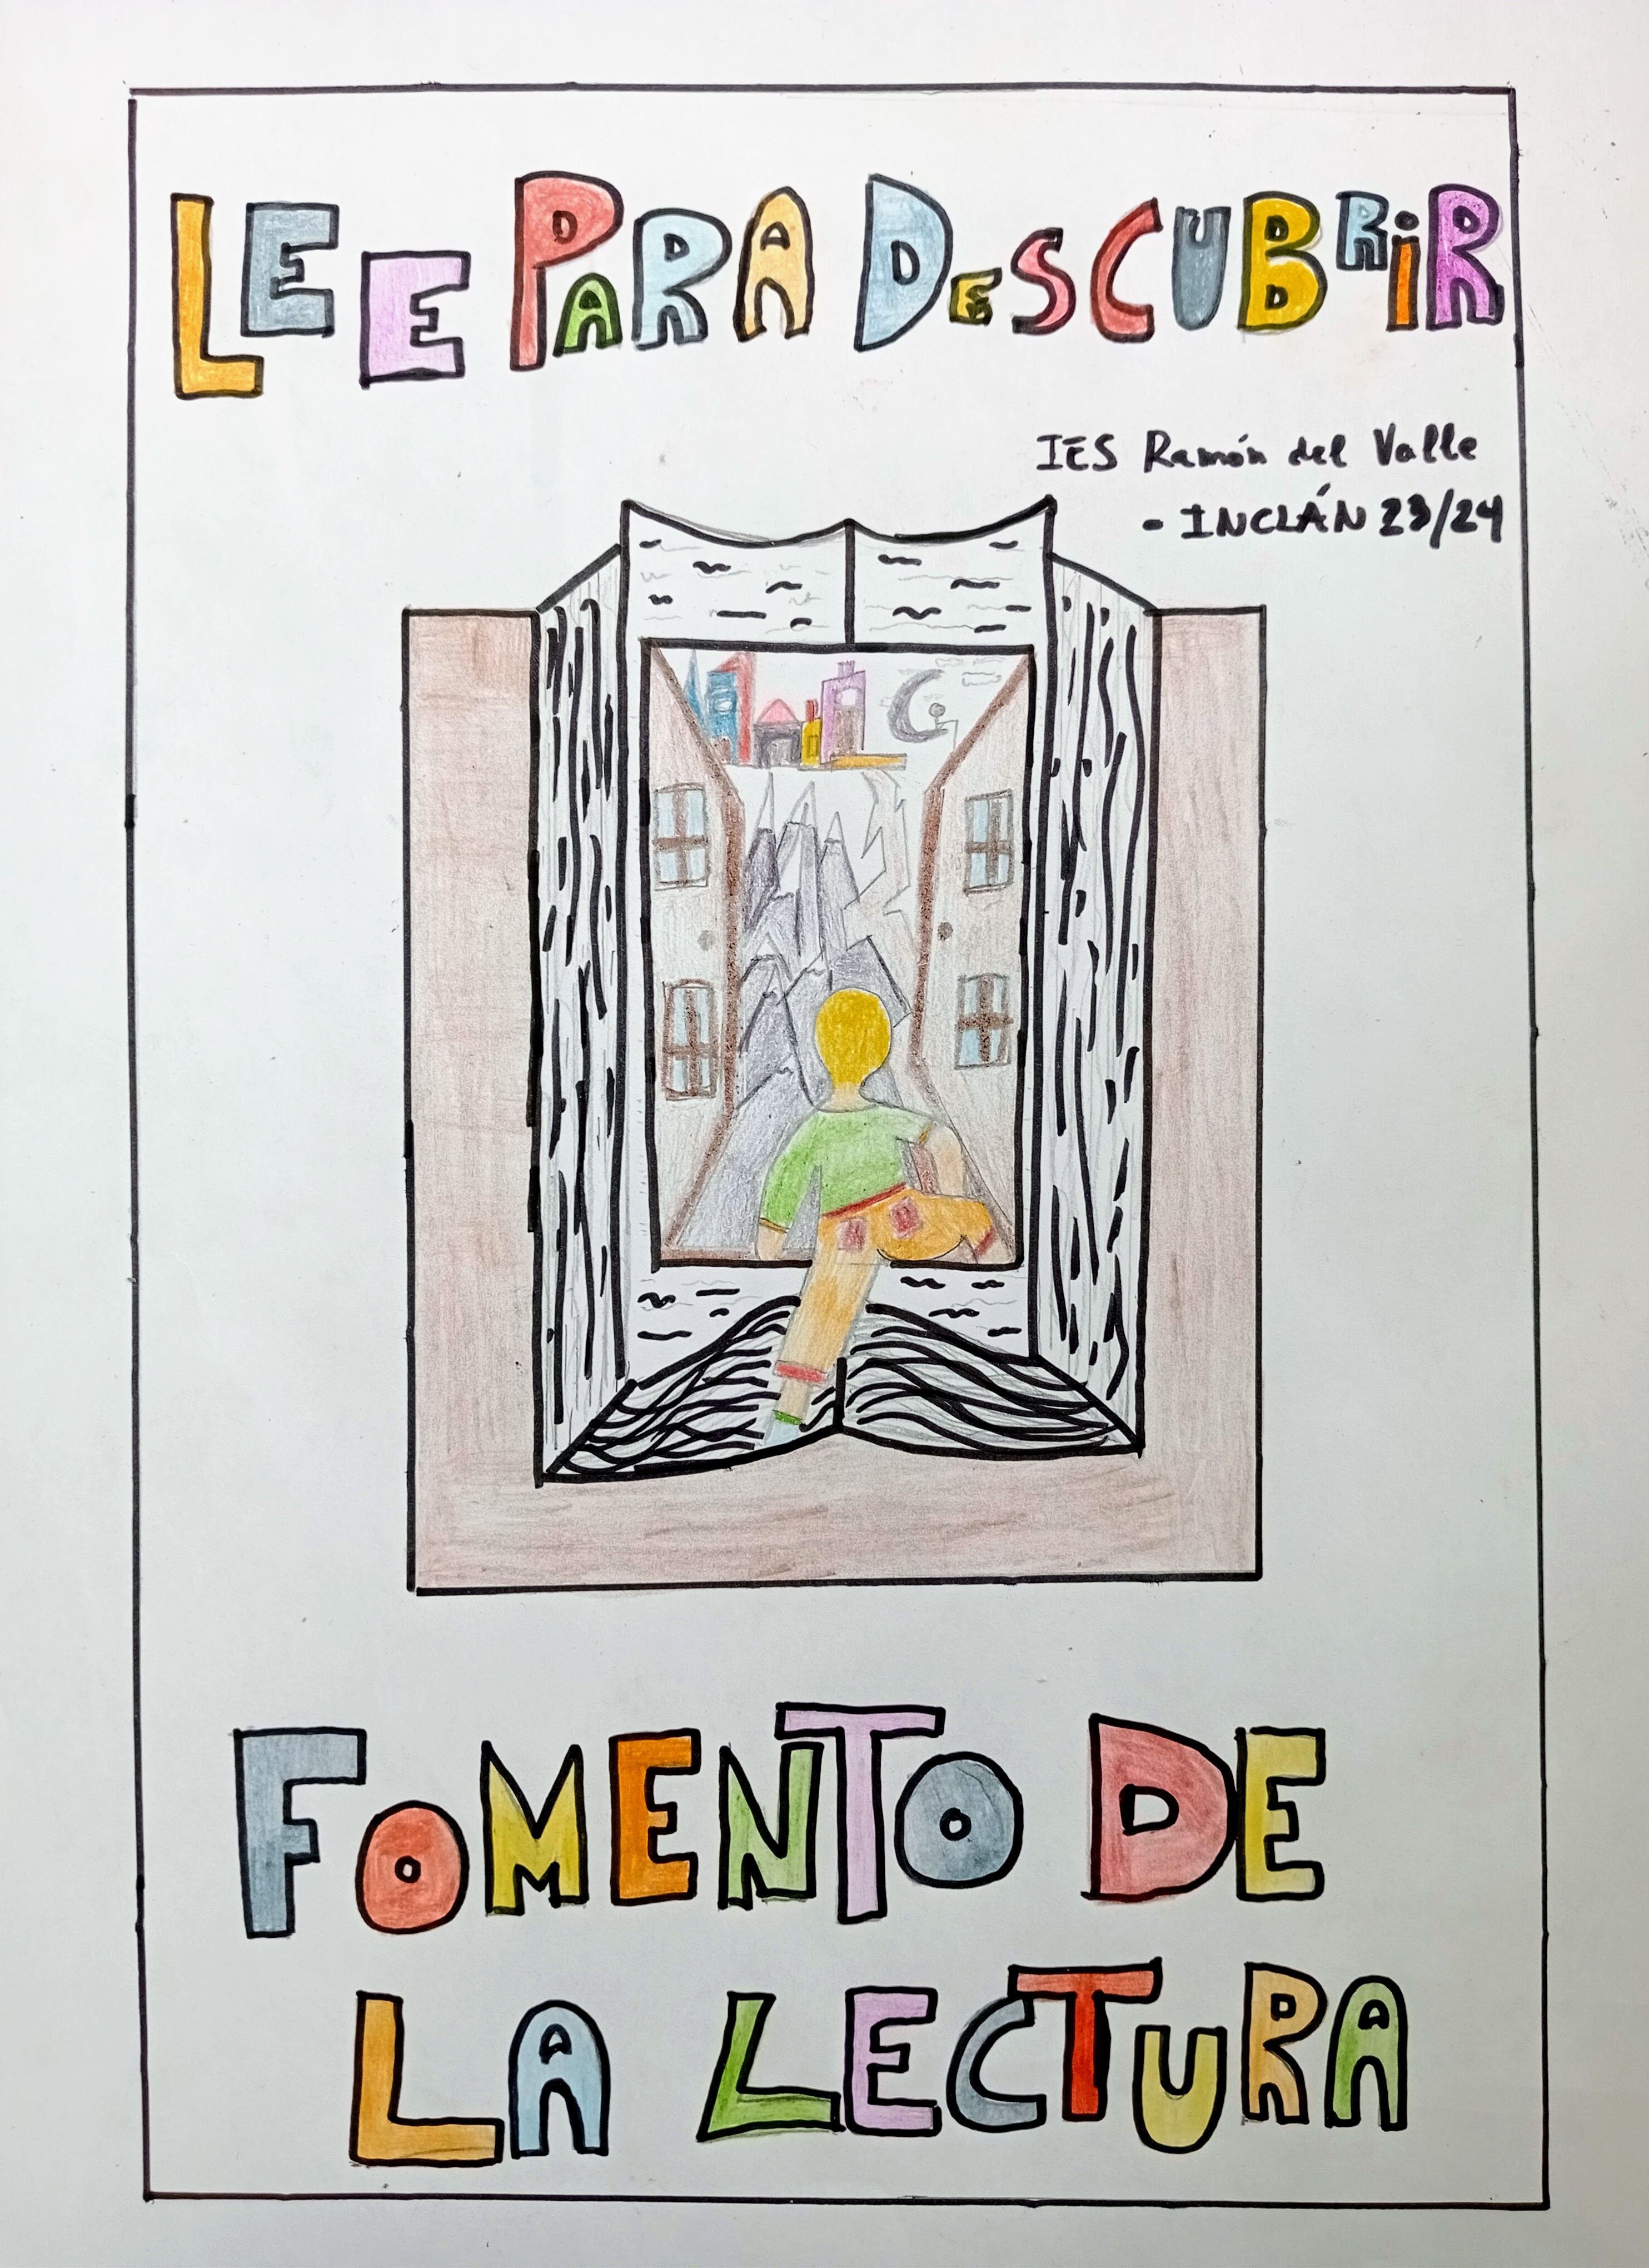 LEE PARA DESCUBRiR
IES Ramón del Valle
- INCLÁN 23/24
FOMENTO DE
LA LECTURA